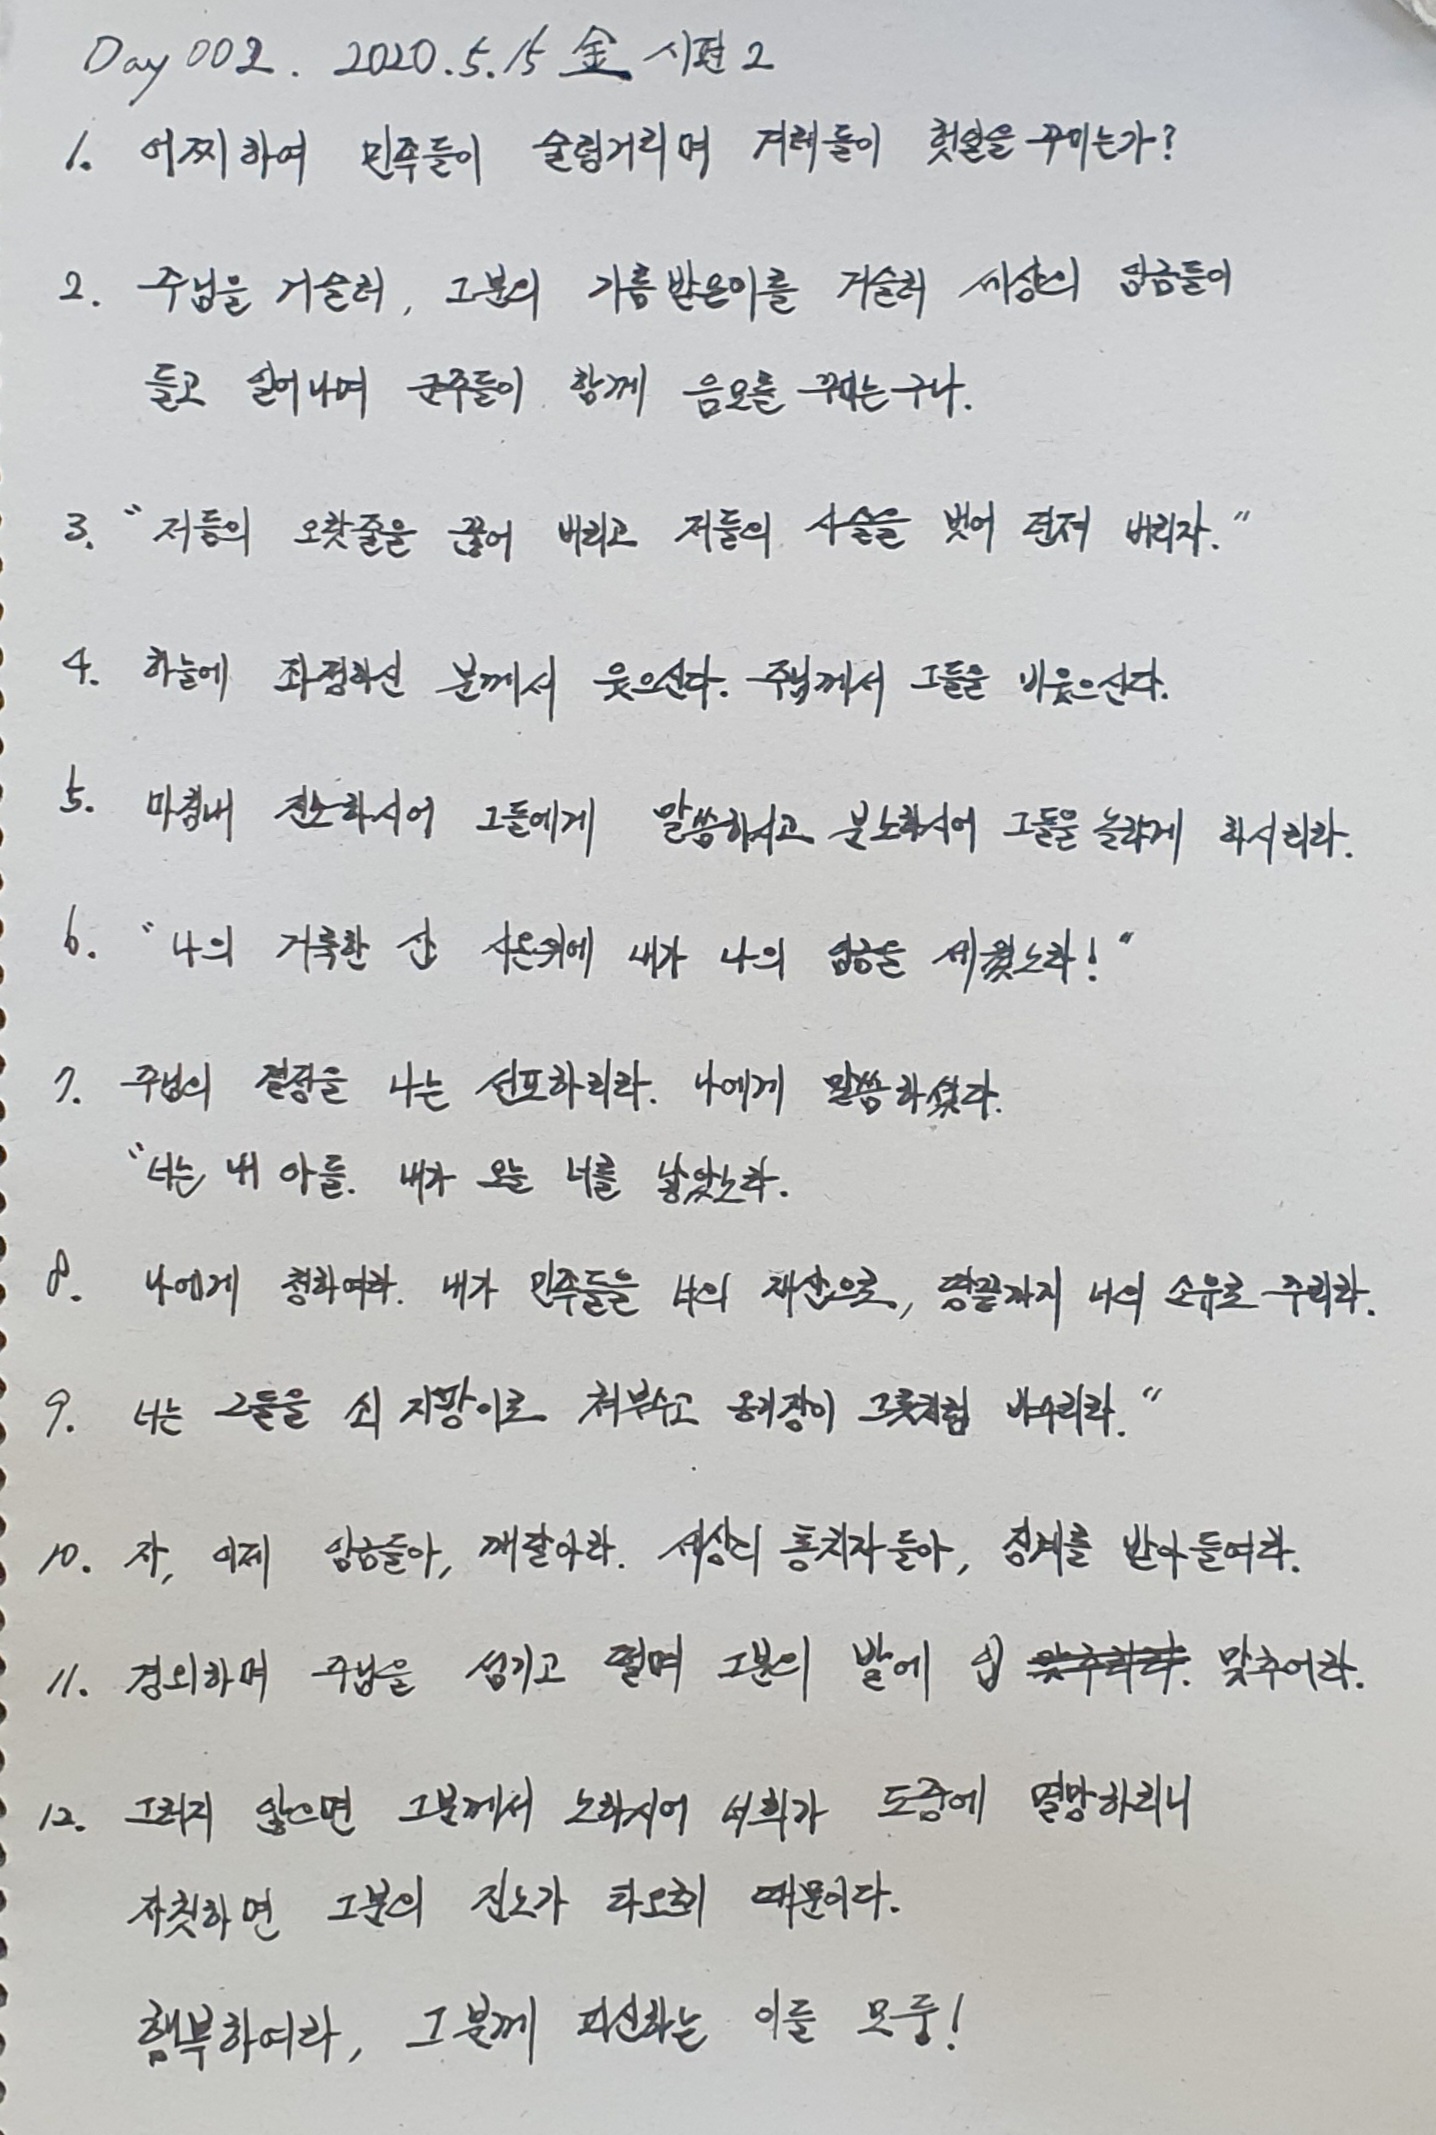 Day 002. 2020.5.15 金 시편 2
1. 어찌하여 민족들이 술렁거리며 겨레들이 헛일을 꾸미는가?
2. 주님을 거슬러, 그분의 기름받은이를 거슬러 세상의 임금들이
들고 일어나며 군주들이 함께 음모를 꾸미는구나.
3. "저들의 오랏줄을 끊어 버리고 저들의 사슬을 벗어 던져 버리자."
4. 하늘에 좌정하신 분께서 웃으신다. 주님께서 그들을 비웃으신다.
5. 마침내 진노하시어 그들에게 말씀하시고 분노하시어 그들을 놀라게 하시리라.
6. "나의 거룩한 산 시온위에 내가 나의 임금을 세웠노라!"
7. 주님의 결정을 나는 선포하리라. 나에게 말씀하셨다.
"너는 내 아들. 내가 오늘 너를 낳았노라.
8. 나에게 청하여라. 내가 민족들을 너의 재산으로, 땅끝까지 너의 소유로 주리라.
9. 너는 그들을 쇠 지팡이로 쳐부수고 옹기장이 그릇처럼 바수리라."
10. 자, 이제 임금들아, 깨달아라. 세상의 통치자들아, 징계를 받아들여라.
11. 경외하며 주님을 섬기고 떨며 그분의 발에 입 맞추어라.
12. 그러지 않으면 그분께서 노하시어 너희가 도중에 멸망하리니
자칫하면 그분의 진노가 타오르기 때문이다.
행복하여라, 그분께 피신하는 이들 모두!